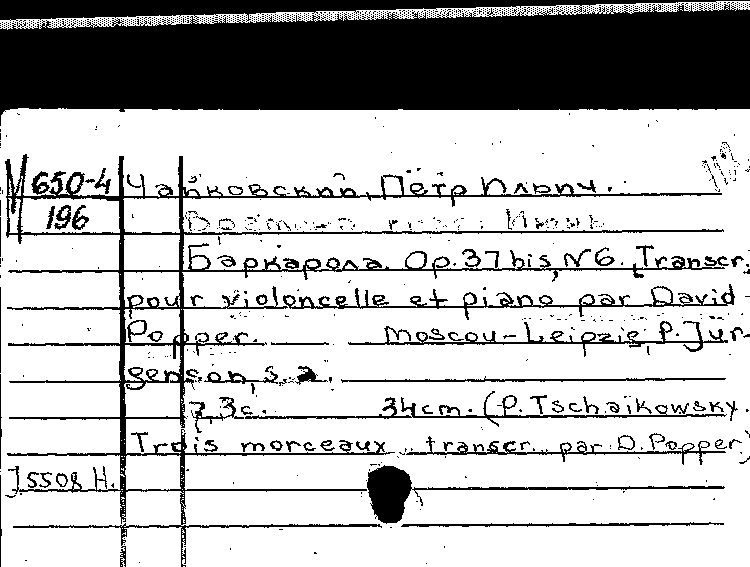 М 650-4 Чайковский, Пётр Ильич.
196 Времена года. Июнь
Баркарола. Op. 37 bis, N6. [Transcr.
pour violoncelle et piano par David
Popper. Moscou-Leipzig, P. Jur-
genson, s. a.
7, 3 с. 34 cm. (P. Tschaikowsky.
Trois morceaux transcr. par D. Popper)
J 5508 Н.